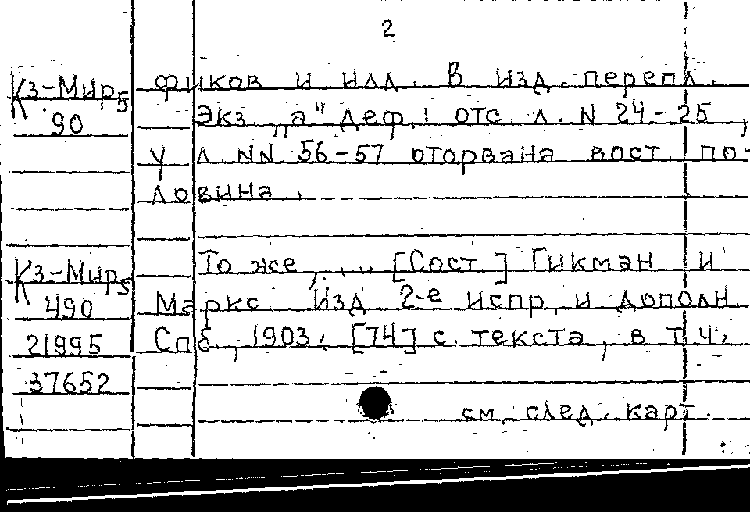 2
Кз-Мир5 фиков и илл. В изд. перепл.
90 Экз. „а" деф.: отс. л. N 24-25,
у л. NN 56-57 оторвана вост. по-
ловина.
Кз-Мир5 То же ... [Сост.] Гикман и
490 Маркс. Изд. 2-е испр. и дополн.
21995 Спб., 1903. [74] с. текста, в т.ч.
37652
см. след. карт.